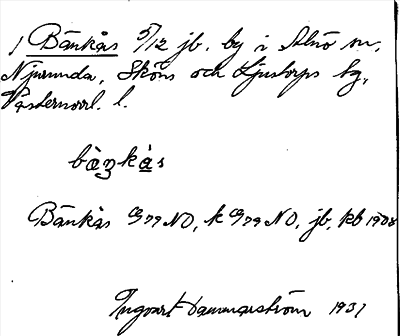 / Bänkås 5/12 jb. by i Alnö sn,
Njurunda, Sköns och Ljustorps tg,
Västernorrl. l.
bäŋkås
Bänkås 79 NO, k 79 NO, jb, kb 1908
Ingvart Hammarström 1931